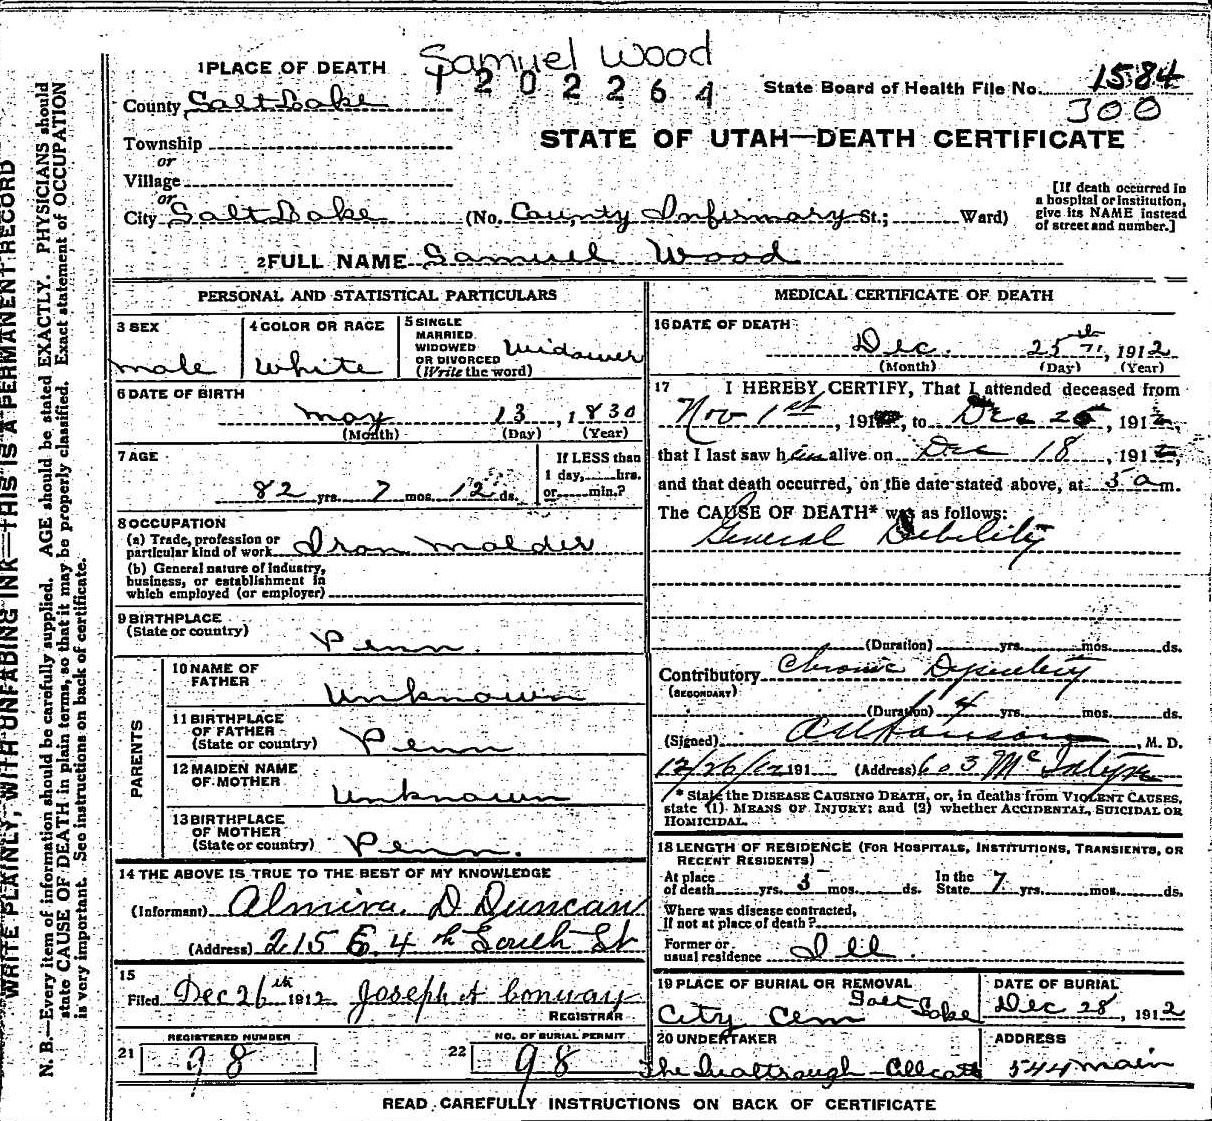 Samuel Wood
1 PLACE OF DEATH
1202264
State Board of Health File No. 1584
300
County Salt Lake
STATE OF UTAH—DEATH CERTIFICATE
Township
or
Village
or
City Salt Lake (No. County Infirmary St.; Ward)
[If death occurred in
a hospital or institution,
give its NAME instead
of street and number.]
2 FULL NAME Samuel Wood
PERSONAL AND STATISTICAL PARTICULARS
3 SEX
male
4 COLOR OR RACE
White
5 SINGLE
MARRIED
WIDOWED
OR DIVORCED
(Write the word)
Widower
6 DATE OF BIRTH
may 13, 1830
(Month) (Day) (Year)
7 AGE
82 yrs. 7 mos. 12 ds.
If LESS than
1 day, hrs.
or min.?
8 OCCUPATION
(a) Trade, profession or
particular kind of work Iron molder
(b) General nature of industry,
business, or establishment in
which employed (or employer)
9 BIRTHPLACE
(State or country)
Penn.
PARENTS
10 NAME OF
FATHER
Unknown
11 BIRTHPLACE
OF FATHER
(State or country)
Penn
12 MAIDEN NAME
OF MOTHER
Unknown
13 BIRTHPLACE
OF MOTHER
(State or country)
Penn.
14 THE ABOVE IS TRUE TO THE BEST OF MY KNOWLEDGE
(Informant) Almira D Duncan
(Address) 215 E. 4th South St
15
Filed Dec 26th 1912 Joseph A Conway
REGISTRAR
REGISTERED NUMBER
21 98
NO. OF BURIAL PERMIT
22 98
MEDICAL CERTIFICATE OF DEATH
16 DATE OF DEATH
Dec. 25th, 1912
(Month) (Day) (Year)
17 I HEREBY CERTIFY, That I attended deceased from
Nov 1st, 191, to Dec 25, 1912,
that I last saw him alive on Dec 18, 1912,
and that death occurred, on the date stated above, at 5 a m.
The CAUSE OF DEATH* was as follows:
General Debility
(Duration) yrs. mos. ds.
Contributory Chronic
(SECONDARY)
(Duration) 4 yrs. mos. ds.
(Signed), M. D.
12/26/12 191 (Address) 603 McIntyre
* State the DISEASE CAUSING DEATH, or, in deaths from VIOLENT CAUSES,
state (1) MEANS OF INJURY; and (2) whether ACCIDENTAL, SUICIDAL OR
HOMICIDAL.
18 LENGTH OF RESIDENCE (FOR HOSPITALS, INSTITUTIONS, TRANSIENTS, OR
RECENT RESIDENTS)
At place
of death yrs. 5 mos. ds.
In the
State 7 yrs. mos. ds.
Where was disease contracted,
if not at place of death?
Former or
usual residence Ill.
19 PLACE OF BURIAL OR REMOVAL
City Cem Salt Lake
DATE OF BURIAL
Dec 28, 1912
20 UNDERTAKER
The
ADDRESS
544 main
READ CAREFULLY INSTRUCTIONS ON BACK OF CERTIFICATE
WRITE PLAINLY, WITH UNFADING INK—THIS IS A PERMANENT RECORD
N. B.—Every item of information should be carefully supplied. AGE should be stated EXACTLY. PHYSICIANS should
state CAUSE OF DEATH in plain terms, so that it may be properly classified. Exact statement of OCCUPATION
is very important. See instructions on back of certificate.